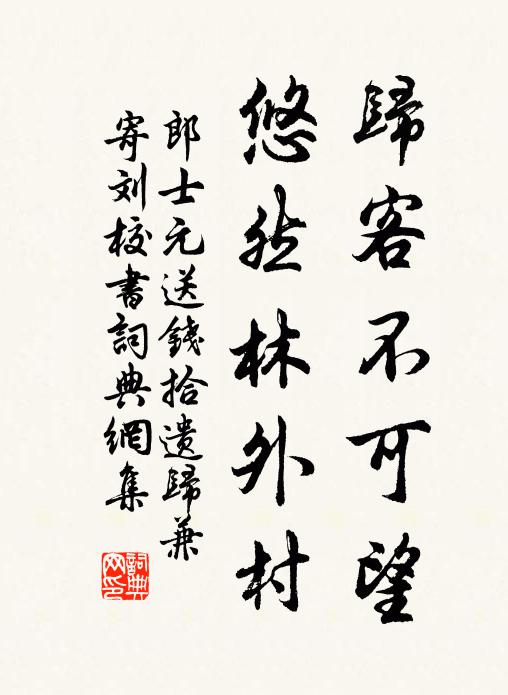 歸客不可望
悠然林外村
郎士元送錢拾遺歸兼
寄刘校書詞典網集
詞典
网印